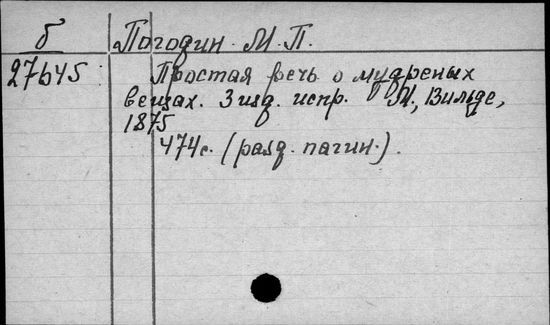 б Погодин. М. П.
27645 Простая речь о мудреных
вещах. 3 изд. испр. М., Вильде,
1875
474с. (разд. пагин.).